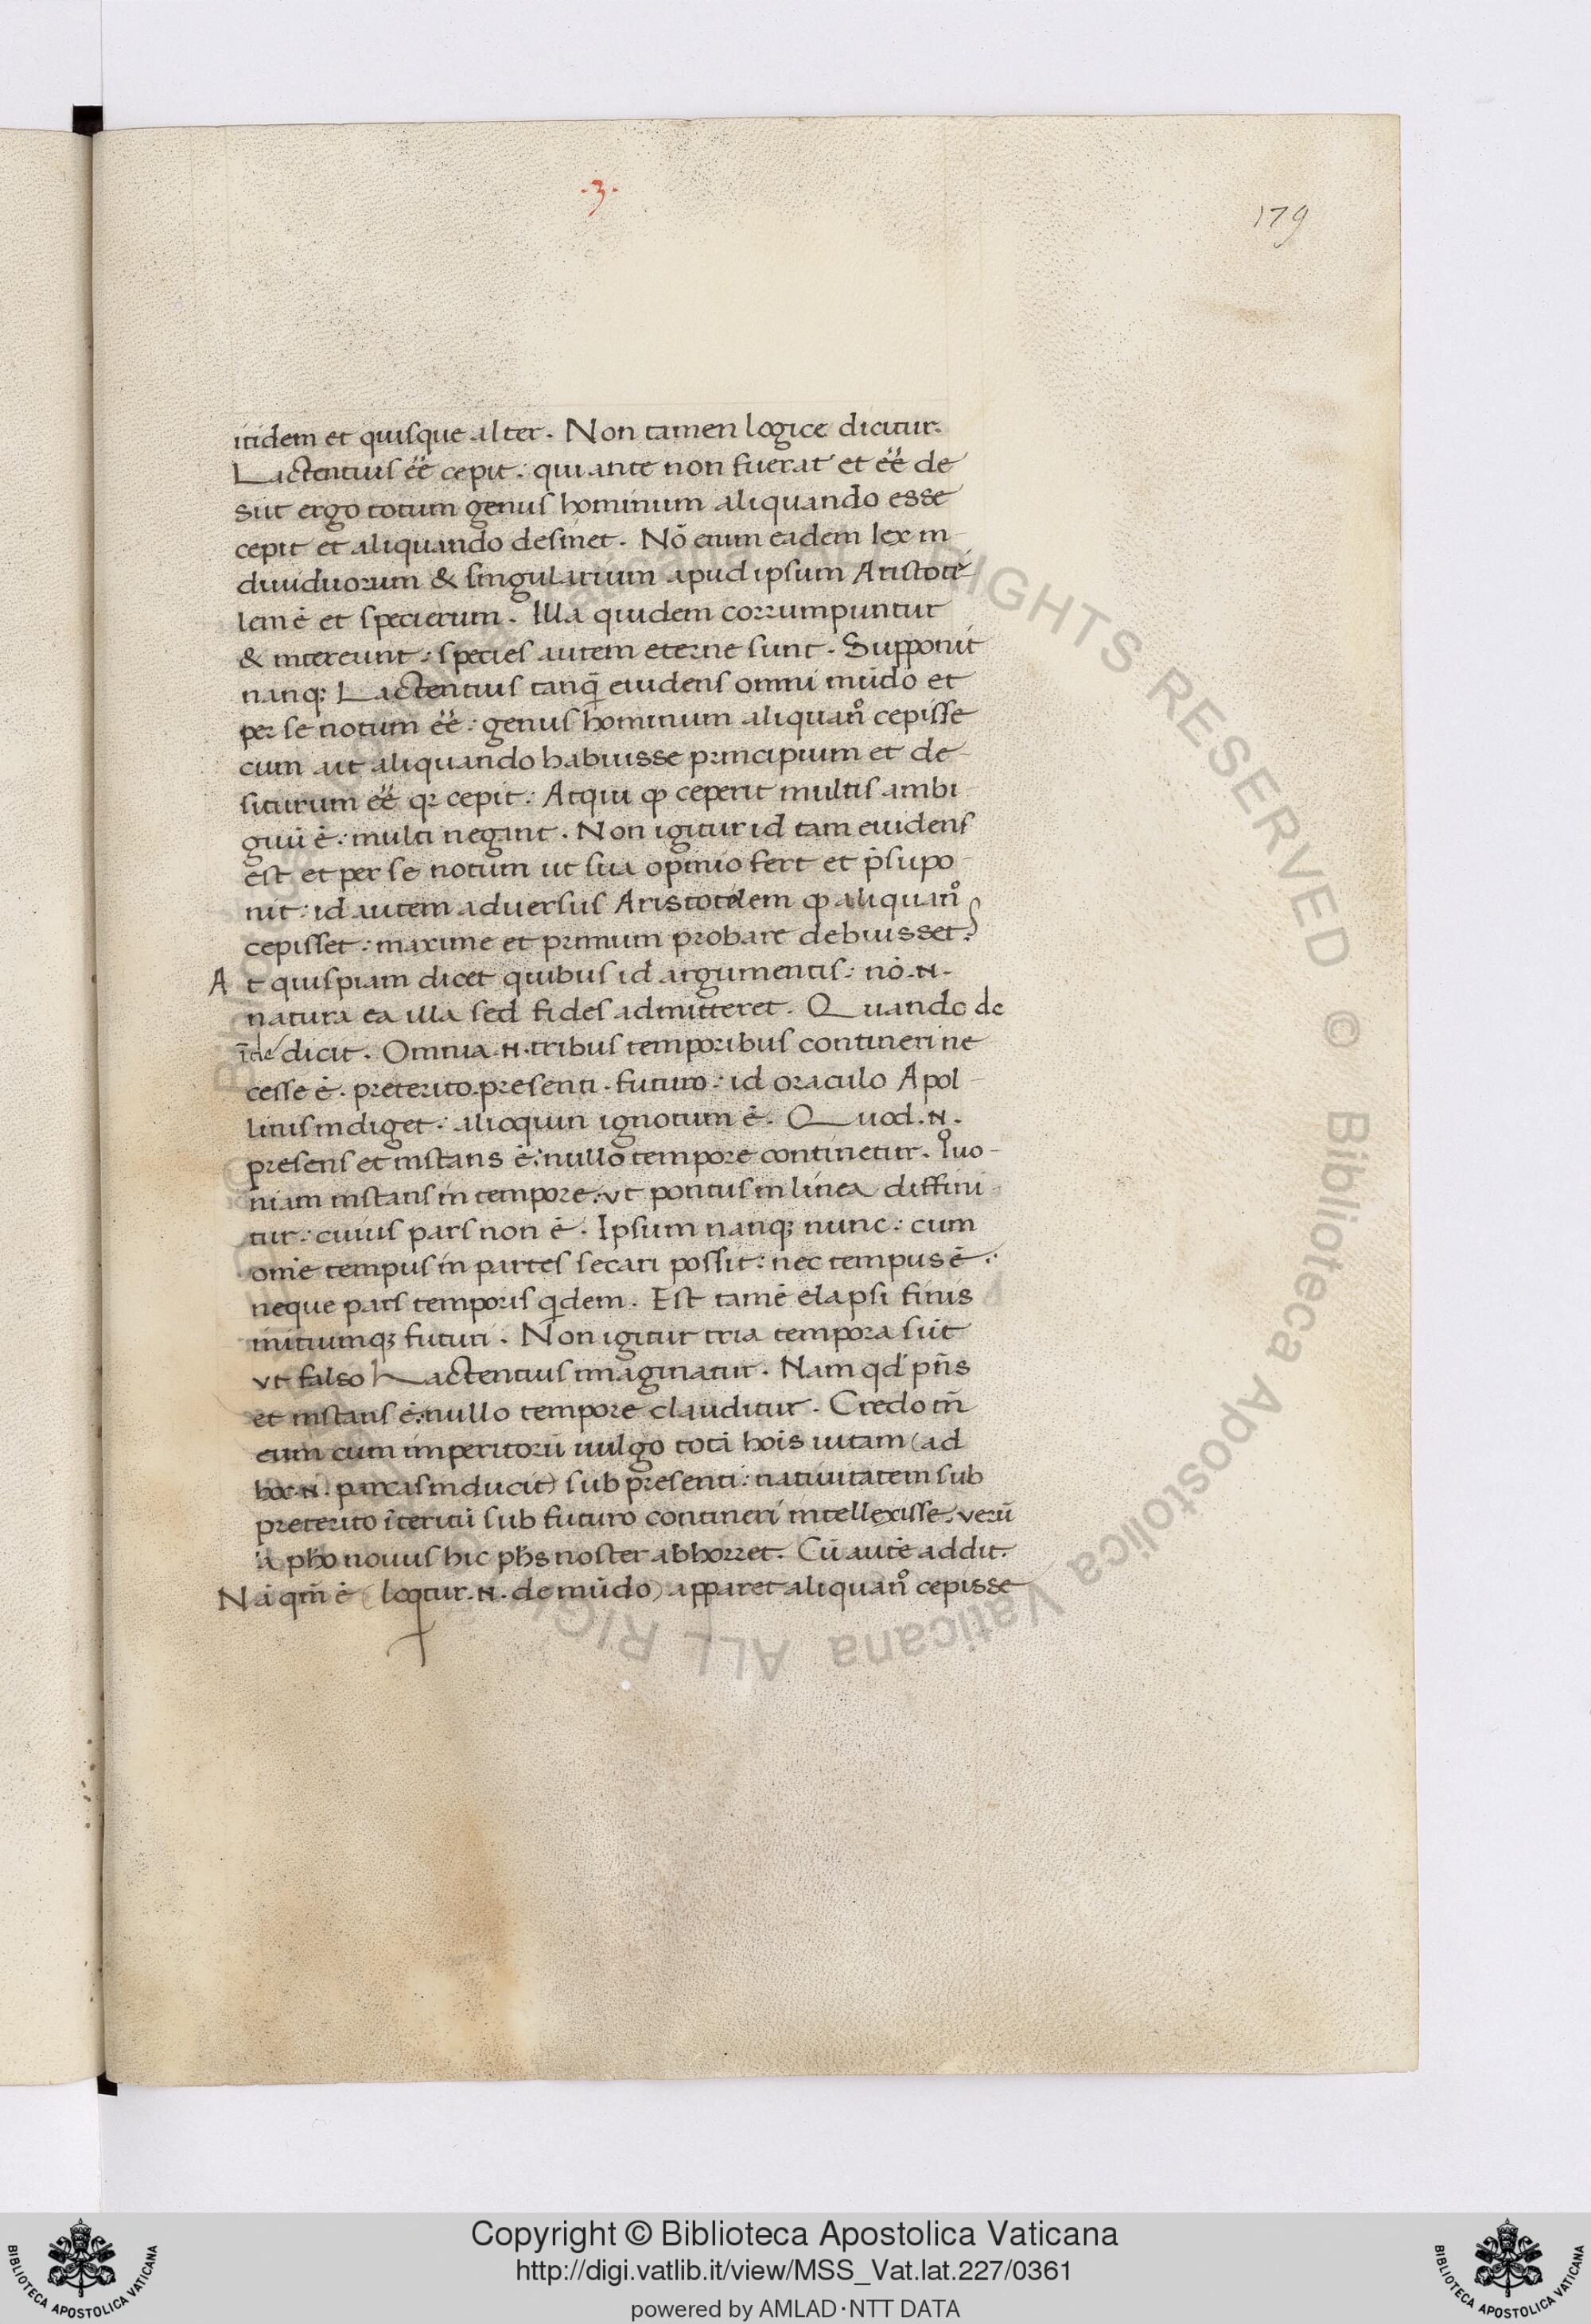 ·3·
179
itidem et quisque alter. Non tamen logice dicitur.
Lactentius ēē cepit: qui ante non fuerat et ēē de
siit ergo totum genus hominum aliquando esse
cepit et aliquando desinet. Nō enim eadem lex in
diuiduorum & singularium apud ipsum Aristote
lem ē et specierum. Illa quidem corrumpuntur
& intereunt: species autem eterne sunt. Supponit
nanq; Lactentius tanq̄ euidens omni mūdo et
per se notum ēē: genus hominum aliquan̊ cepisse
cum ait aliquando habuisse principium et de
siturum ēē qꝛ cepit: Atqui ꝙ ceperit multis ambi
guū ē: multi negant. Non igitur id tam euidens
est et per se notum ut sua opinio fert et p̄supo
nit: id autem aduersus Aristotelem ꝙ aliquan̊
cepisset: maxime et primum probare debuisset.
At quispiam dicet quibus id argumentis: nō .N.
natura ea illa sed fides admitteret. Quando de
īde dicit. Omnia .N. tribus temporibus contineri ne
cesse ē. preterito. presenti. futuro: id oraculo Apol
linis indiget: alioquin ignotum ē. Quod .N.
presens et instans ē: nullo tempore continetur. Quo
niam instans in tempore: vt pontus in linea diffini
tur: cuius pars non ē. Ipsum nanq; nunc: cum
om̄e tempus in partes secari possit: nec tempus ē:
neque pars temporis qdem. Est tamē elapsi finis
initiumq; futuri. Non igitur tria tempora sūt
vt falso Lactentius imaginatur. Nam qd p̄ns
et instans ē: nullo tempore clauditur. Credo tn̄
eum cum imperitorū uulgo totā hoīs uitam (ad
hoc .N. parcas inducit) sub presenti: natiuitatem sub
preterito īteritū sub futuro contineri intellexisse. verū
a pho nouus hic phs noster abhorret. Cū autē addit.
Nā qm̄ ē (loqtur .N. de mūdo) apparet aliquan̊ cepisse
Copyright © Biblioteca Apostolica Vaticana
http://digi.vatlib.it/view/MSS_Vat.lat.227/0361
powered by AMLAD·NTT DATA
BIBLIOTECA APOSTOLICA VATICANA
BIBLIOTECA APOSTOLICA VATICANA
© Biblioteca Apostolica Vaticana ALL RIGHTS RESERVED